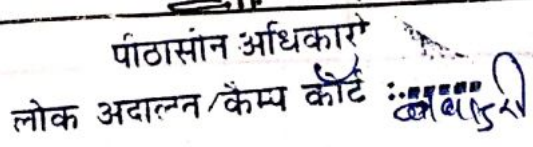 पीठासीन अधिकारी
लोक अदालत/कैम्प कोर्ट :.......